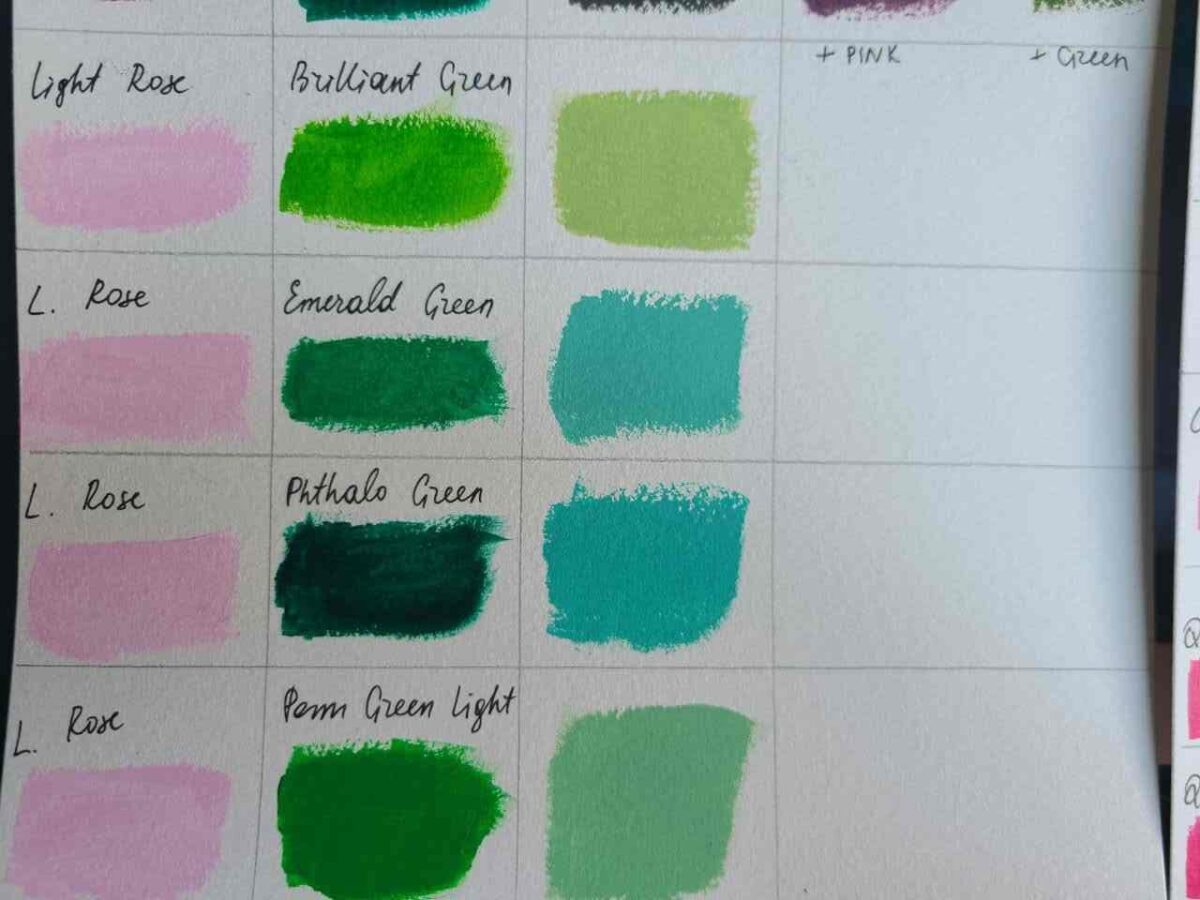 + PINK
+ Green
Light Rose
Brilliant Green
L. Rose
Emerald Green
L. Rose
Phthalo Green
L. Rose
Perm Green Light
Q
Q